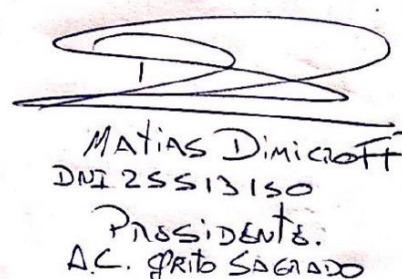 Matias Dimicroff
DNI 25513150
Presidente.
A.C. Grito Sagrado